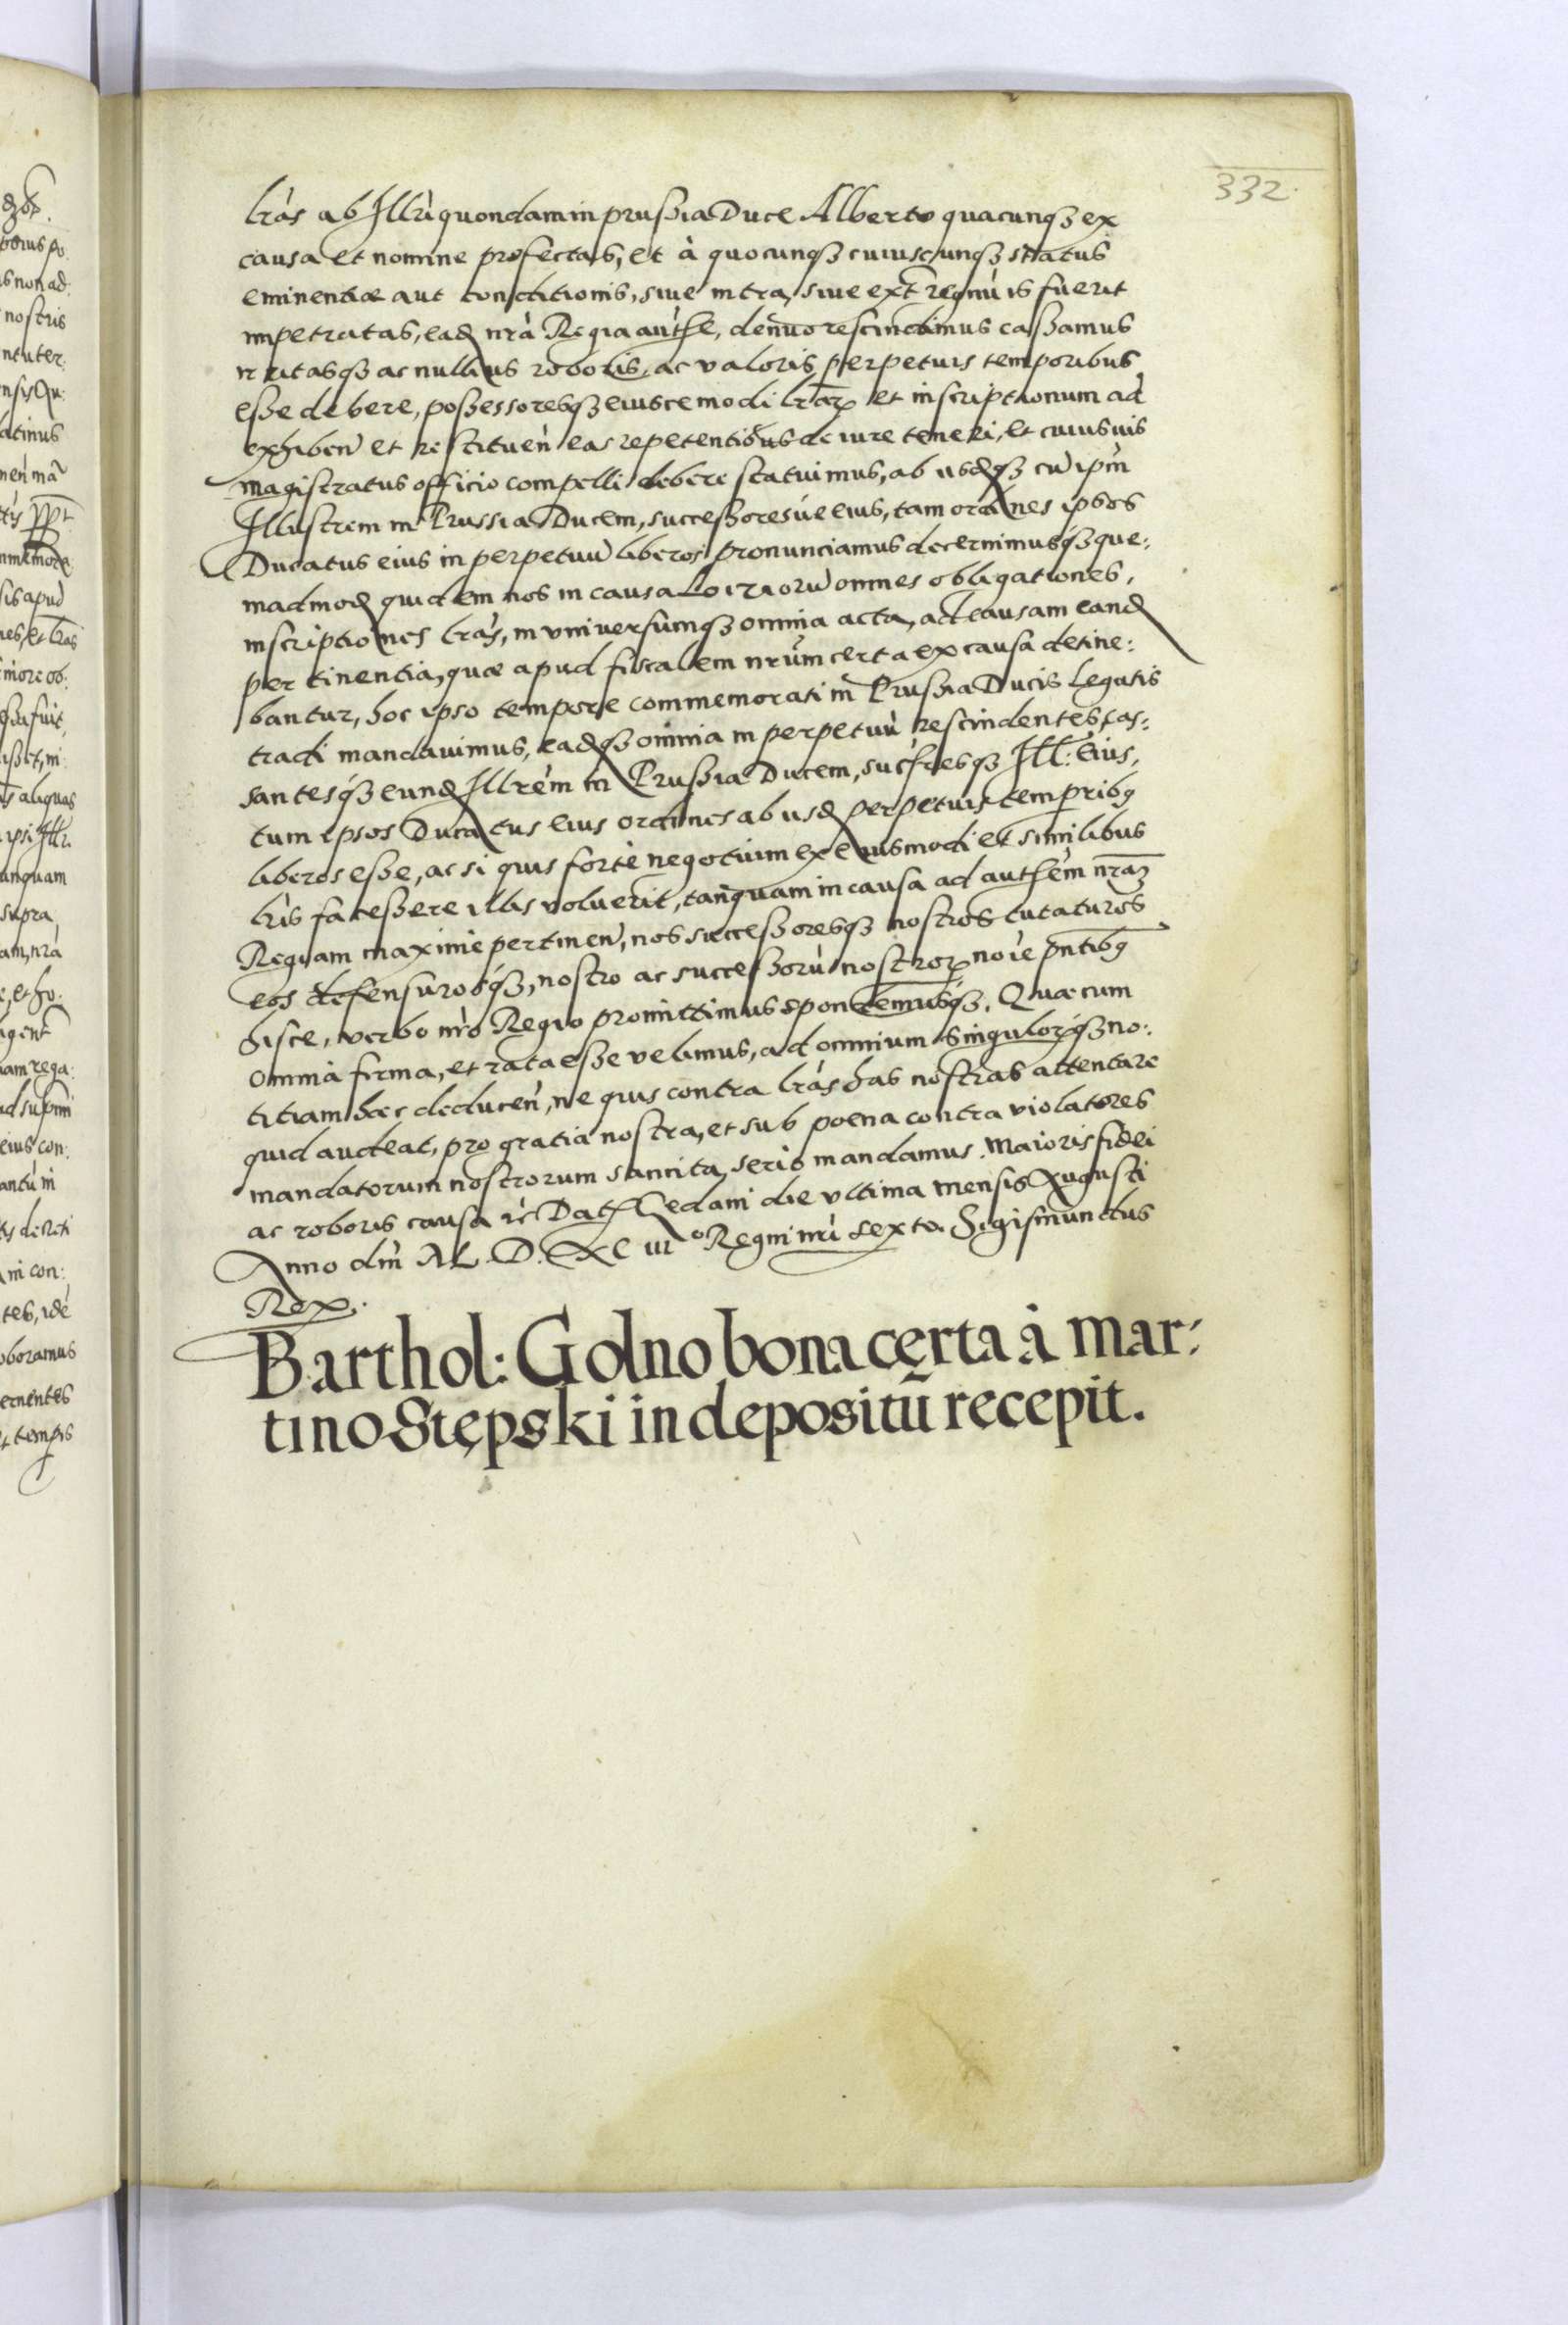 332.
lrãs ab Illri quondam in prussia Duce Alberto quacunqз ex
causa et nomine profectas, et à quocunqз cuiuscunqз status
eminentiæ aut conditionis, siue intra, siue extr̃ regnũ is fuerit
impetratas, ead nr̃a Regia autħe, denuo rescindimus cassamus
irritasqз ac nullius roboris, ac valoris perpetuis temporibus
esse debere, possessoresqз eiuscemodi lrãrꝝ et inscriptionum ad
exhibeñ et restitueñ eas repetentibus de iure teneri, et cuiusuis
magistratus officio compelli debere statuimus, ab iisdqз cũ ipm̃
Illustrem in Prussia Ducem, successoresúe eius, tam ordines ipsos
Ducatus eius in perpetuũ liberos pronunciamus decernimusqз que:
madmod quidem nos in causa Loiziorũ omnes obligationes,
inscriptiones lrãs, in vniuersumqз omnia acta, ad causam eand
pertinentia, quæ apud fiscalem nrũm certa ex causa detine:
bantur, hoc ipso tempore commemorati in Prussia Ducis Legatis
tradi mandauimus, eadqз omnia in perpetuũ rescindentes, cas:
santesqз eund Illrem in Prussia Ducem, sucſresqз Ill: eius,
tum ipsos Ducatus eius ordines ab iisd perpetuis temporibꝯ
liberos esse, ac si quis fortè negotium ex eiusmodi et similibus
lr̃is facessere illis voluerit, tanquam in causa ad autħem nrãm
Regiam maximè pertineñ, nos successoresqз nostros tutaturos
eos defensurosqз, nostro ac successorũ nostrorꝝ noĩe pñtibꝯ
hisce, verbo nrõ Regio promittimus spondemusqз. Quæ cum
omnia firma, et rata esse velimus, ad omnium singulorꝝqз no:
titiam hæc deduceñ, ne quis contra lrãs has nostras attentare
quid audeat, pro gratia nostra, et sub poena contra violatores
mandatorum nostrorum sancita, serio mandamus. Maioris fidei
ac roboris causa ꝛc̃ Datħ Gedani die vltima mensis Augusti
Anno dñi M. D. XC III° Regni nri sexto. Sigismundus
Rex.
Barthol: Golno bona certa à mar:
tino Stępski in depositũ recepit.